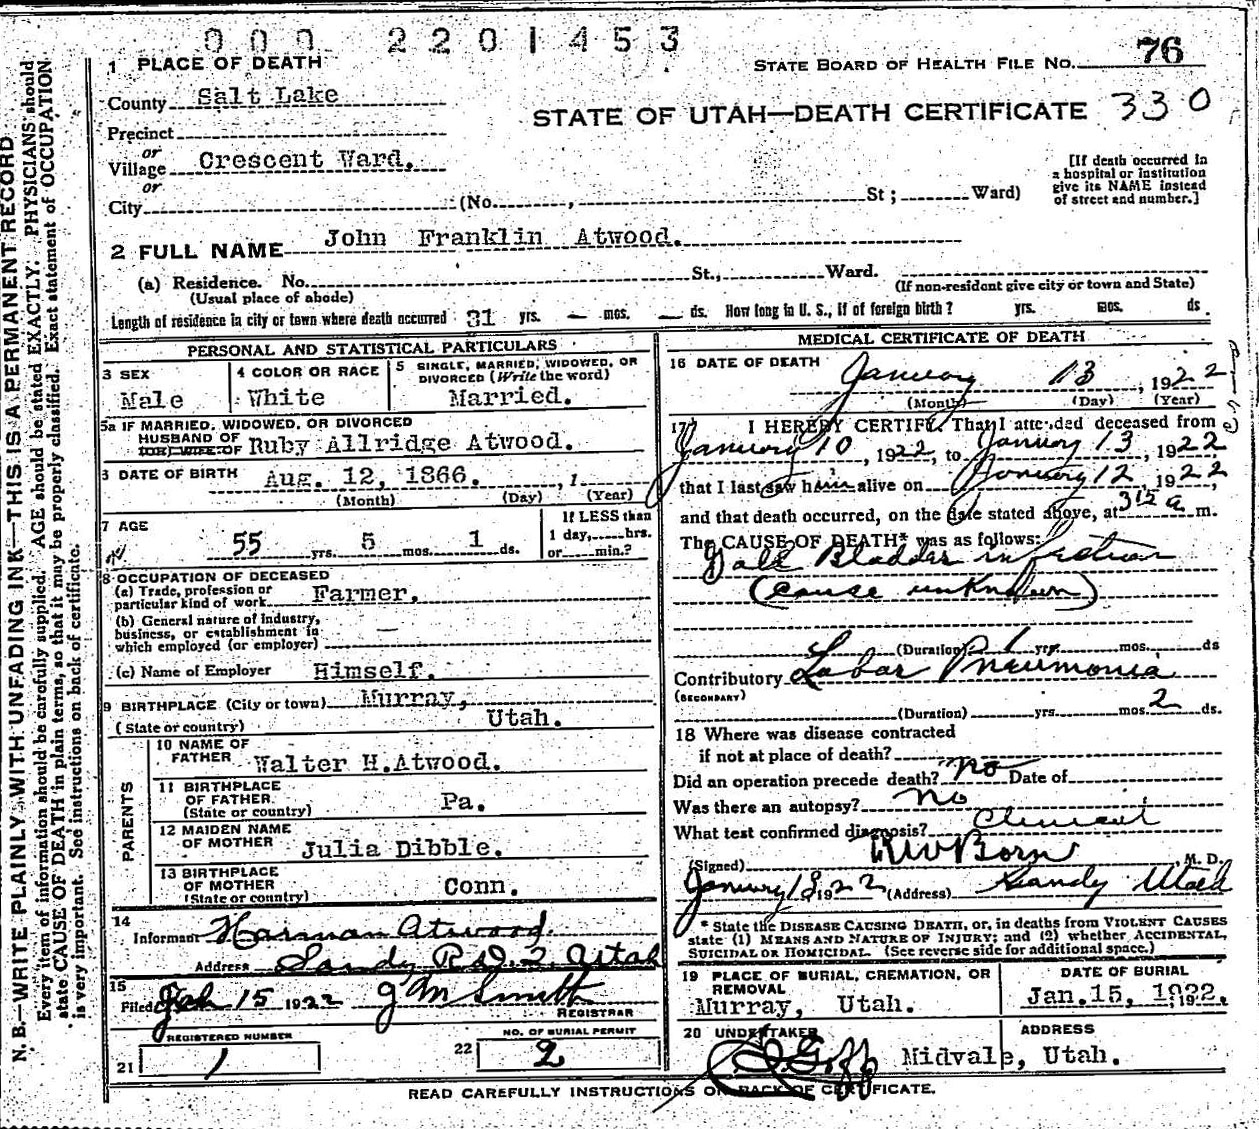 000 2201453
1 PLACE OF DEATH
STATE BOARD OF HEALTH FILE NO. 76
County Salt Lake
STATE OF UTAH—DEATH CERTIFICATE 330
Precinct
or
Village Crescent Ward.
or
City (No. , St; Ward)
[If death occurred in
a hospital or institution
give its NAME instead
of street and number.]
2 FULL NAME John Franklin Atwood.
(a) Residence. No. St., Ward.
(Usual place of abode)
(If non-resident give city or town and State)
Length of residence in city or town where death occurred 31 yrs. — mos. — ds. How long in U. S., if of foreign birth? yrs. mos. ds.
PERSONAL AND STATISTICAL PARTICULARS
3 SEX
Male
4 COLOR OR RACE
White
5 SINGLE, MARRIED, WIDOWED, OR
DIVORCED (Write the word)
Married.
5a IF MARRIED, WIDOWED, OR DIVORCED
HUSBAND OF
(OR) WIFE OF Ruby Allridge Atwood.
6 DATE OF BIRTH Aug. 12, 1866. , 1
(Month) (Day) (Year)
7 AGE
55 yrs. 5 mos. 1 ds.
If LESS than
1 day, hrs.
or min.?
8 OCCUPATION OF DECEASED
(a) Trade, profession or
particular kind of work Farmer.
(b) General nature of industry,
business, or establishment in
which employed (or employer) —
(c) Name of Employer Himself.
9 BIRTHPLACE (City or town) Murray,
(State or country) Utah.
PARENTS
10 NAME OF
FATHER Walter H.Atwood.
11 BIRTHPLACE
OF FATHER
(State or country) Pa.
12 MAIDEN NAME
OF MOTHER Julia Dibble.
13 BIRTHPLACE
OF MOTHER
(State or country) Conn.
14
Informant Harman Atwood.
Address Sandy R.D. 2. Utah
15
Filed 15 1922 J M Smith
REGISTRAR
REGISTERED NUMBER
21 1
NO. OF BURIAL PERMIT
22 2
MEDICAL CERTIFICATE OF DEATH
16 DATE OF DEATH January 13, 1922
(Month) (Day) (Year)
17 I HEREBY CERTIFY, That I attended deceased from
January 10, 1922, to January 13, 1922
that I last saw him alive on January 12, 1922,
and that death occurred, on the date stated above, at 3 15 a m.
The CAUSE OF DEATH* was as follows:
Gall Bladder infection
(cause unknown)
(Duration) 1 yrs. mos. ds
Contributory Lobar Pneumonia
(SECONDARY)
(Duration) yrs. mos. 2 ds.
18 Where was disease contracted
if not at place of death?
Did an operation precede death? no Date of
Was there an autopsy? no
What test confirmed diagnosis? Clinical
(Signed) RW Born M. D.
January 13 1922 (Address) Sandy Utah
* State the DISEASE CAUSING DEATH, or, in deaths from VIOLENT CAUSES
state (1) MEANS AND NATURE OF INJURY; and (2) whether ACCIDENTAL,
SUICIDAL OR HOMICIDAL. (See reverse side for additional space.)
19 PLACE OF BURIAL, CREMATION, OR
REMOVAL
Murray, Utah.
DATE OF BURIAL
Jan.15, 1922. 192
20 UNDERTAKER
Goff
ADDRESS
Midvale, Utah.
READ CAREFULLY INSTRUCTIONS ON BACK OF CERTIFICATE.
N. B.—WRITE PLAINLY WITH UNFADING INK—THIS IS A PERMANENT RECORD
Every item of information should be carefully supplied. AGE should be stated EXACTLY. PHYSICIANS should
state CAUSE OF DEATH in plain terms, so that it may be properly classified. Exact statement of OCCUPATION
is very important. See instructions on back of certificate.